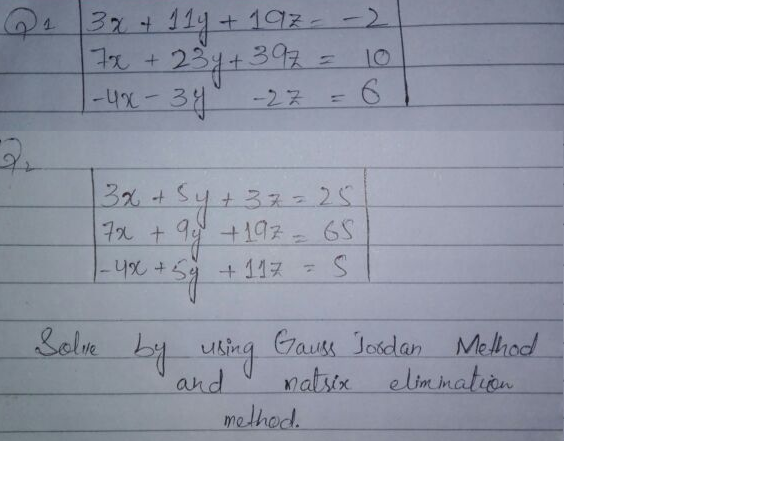 Q1 3x + 11y + 19z = -2
7x + 23y + 39z = 10
-4x - 3y -2z = 6
Q2
3x + 5y + 3z = 25
7x + 9y + 19z = 65
-4x + 5y + 11z = 5
Solve by using Gauss Jordan Method
and matrix elimination
method.